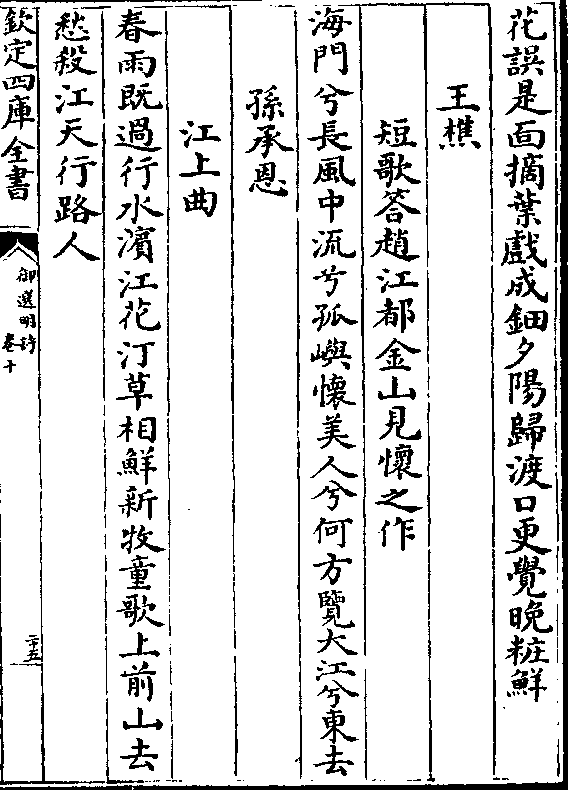 花誤是面摘葉戲成鈿夕陽歸渡口更覺晚粧鮮
王樵
短歌答趙江都金山見懷之作
海門兮長風中流兮孤嶼懷美人兮何方覽大江兮東去
孫承恩
江上曲
春雨既過行水濱江花汀草相鮮新牧童歌上前山去
愁殺江天行路人
欽定四庫全書
御選明詩
卷十
二十五